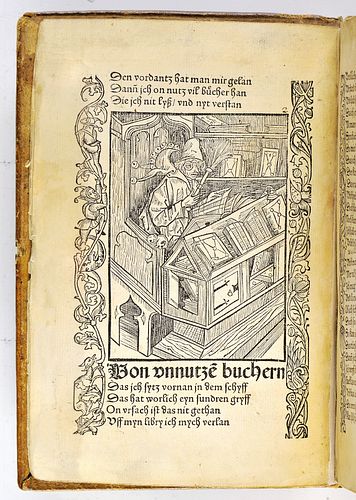 Den vordantz hat man mir gelan
Dann̄ ich on nutz vil bücher han
Die ich nit lyß / vnd nyt verstan
Von vnnutzē buchern
Das ich sytz vornan jn dem schyff
Das hat worlich eyn sundren gryff
On vrsach ist das nit gethan
Vff myn libry ich mych verlan